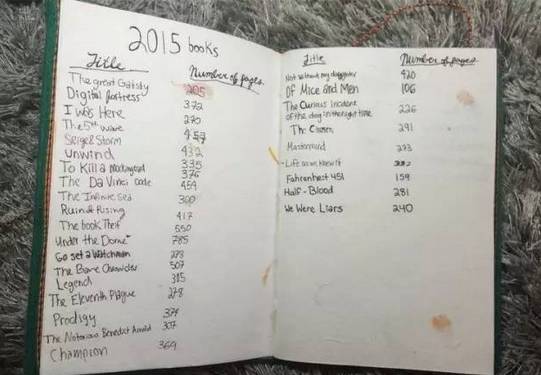 2015 books
Title Number of pages
The great Gatsby 205
Digital fortress 372
I was Here 270
The 5th wave 457
Seige & Storm 432
Unwind 335
To Kill a Mockingbird 376
The Da Vinci code 454
The Infinite Sea 300
Ruin & Rising 417
The book Theif 550
Under the Dome 785
Go set a Watchman 278
The Bane Chronicles 507
Legend 315
The Eleventh Plague 278
Prodigy 374
The Notorious Benedict Arnold 307
Champion 369
Title Number of pages
Not without my daughter 420
Of Mice and Men 106
The Curious Incident
of the dog in the night time 226
The Chosen 291
Mastermind 293
Life as we knew it
Fahrenheit 451 159
Half-Blood 281
We Were Liars 240